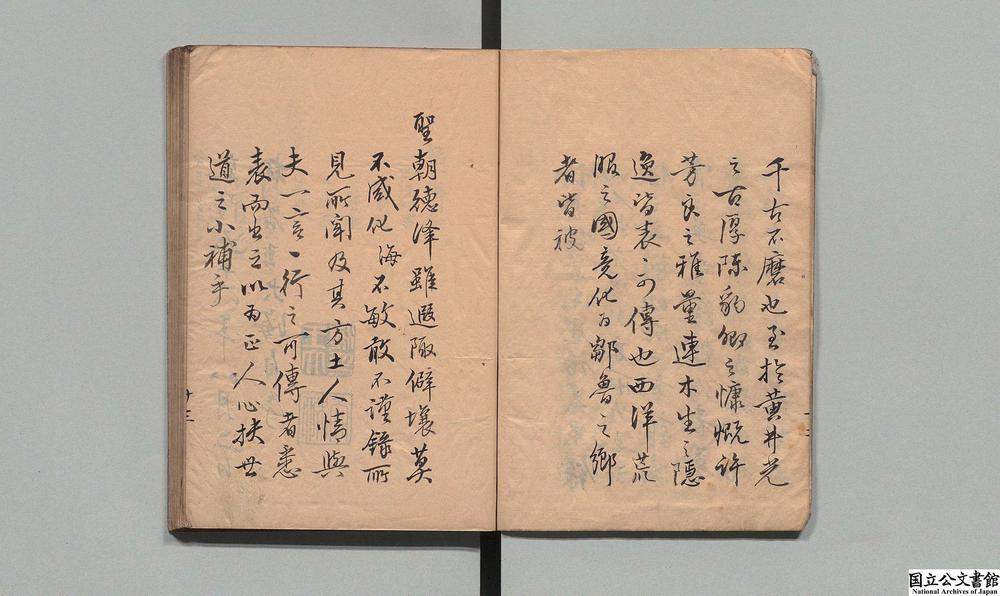 千古不磨也至於黃井光
之古厚陳豹卿之慷慨許
芳良之雅量連木生之隱
逸皆表々可傳也西洋荒
服之國竟化爲鄒魯之鄉
者皆被
聖朝德澤雖遐陬僻壤莫
不感化海不敏敢不謹錄所
見所聞及其方土人情與
夫一言一行之可傳者悉
表而出之以爲正人心扶世
道之小補乎
国立公文書館
National Archives of Japan